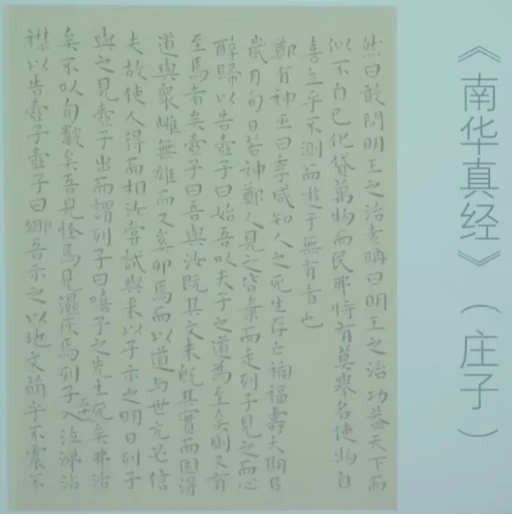 《南华真经》（庄子）
然曰敢問明王之治老聃曰明王之治功蓋天下而
似不自己化貸萬物而民弗恃有莫舉名使物自
喜立乎不測而遊于無有者也
鄭有神巫曰季咸知人之死生存亡禍福壽夭期以
歲月旬日若神鄭人見之皆棄而走列子見之而心
醉歸以告壺子曰始吾以夫子之道為至矣則又有
至焉者矣壺子曰吾與汝既其文未既其實而固得
道與衆雌無雄而又奚卵焉而以道与世亢必信
夫故使人得而相汝嘗試與来以予示之明日列子
與之見壺子出而謂列子曰嘻子之先生死矣弗活
矣不以旬數矣吾見怪焉見濕灰焉列子入泣涕沾
襟以告壺子壺子曰鄉吾示之以地文萌乎不震不